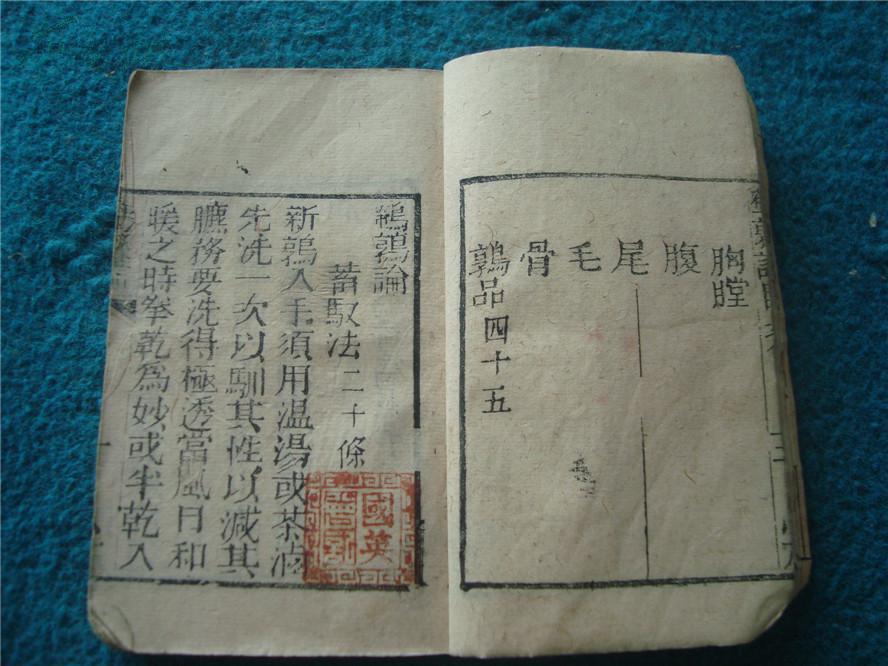 胸膛
腹
尾
毛
骨
鶉品四十五
鵪鶉論
蓄馭法二十條
新鶉入手須用温湯或茶滷
先洗一次以馴其性以減其
臕務要洗得極透當風日和
暖之時拳乾為妙或半乾入
國英